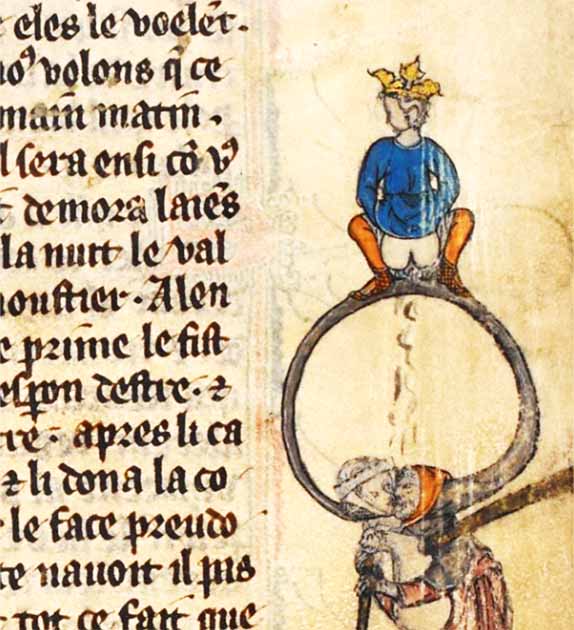 eles le voelēt.
noꝰ volons q̄ ce
main matin.
l sera ensi cō vꝰ
demora laiēs
la nuit le val
moustier. A len
e prime le fist
espon destre. ⁊
tre. apres li ca
⁊ li dona la co
le face preudo
te nauoit il pas
tot ce fait que